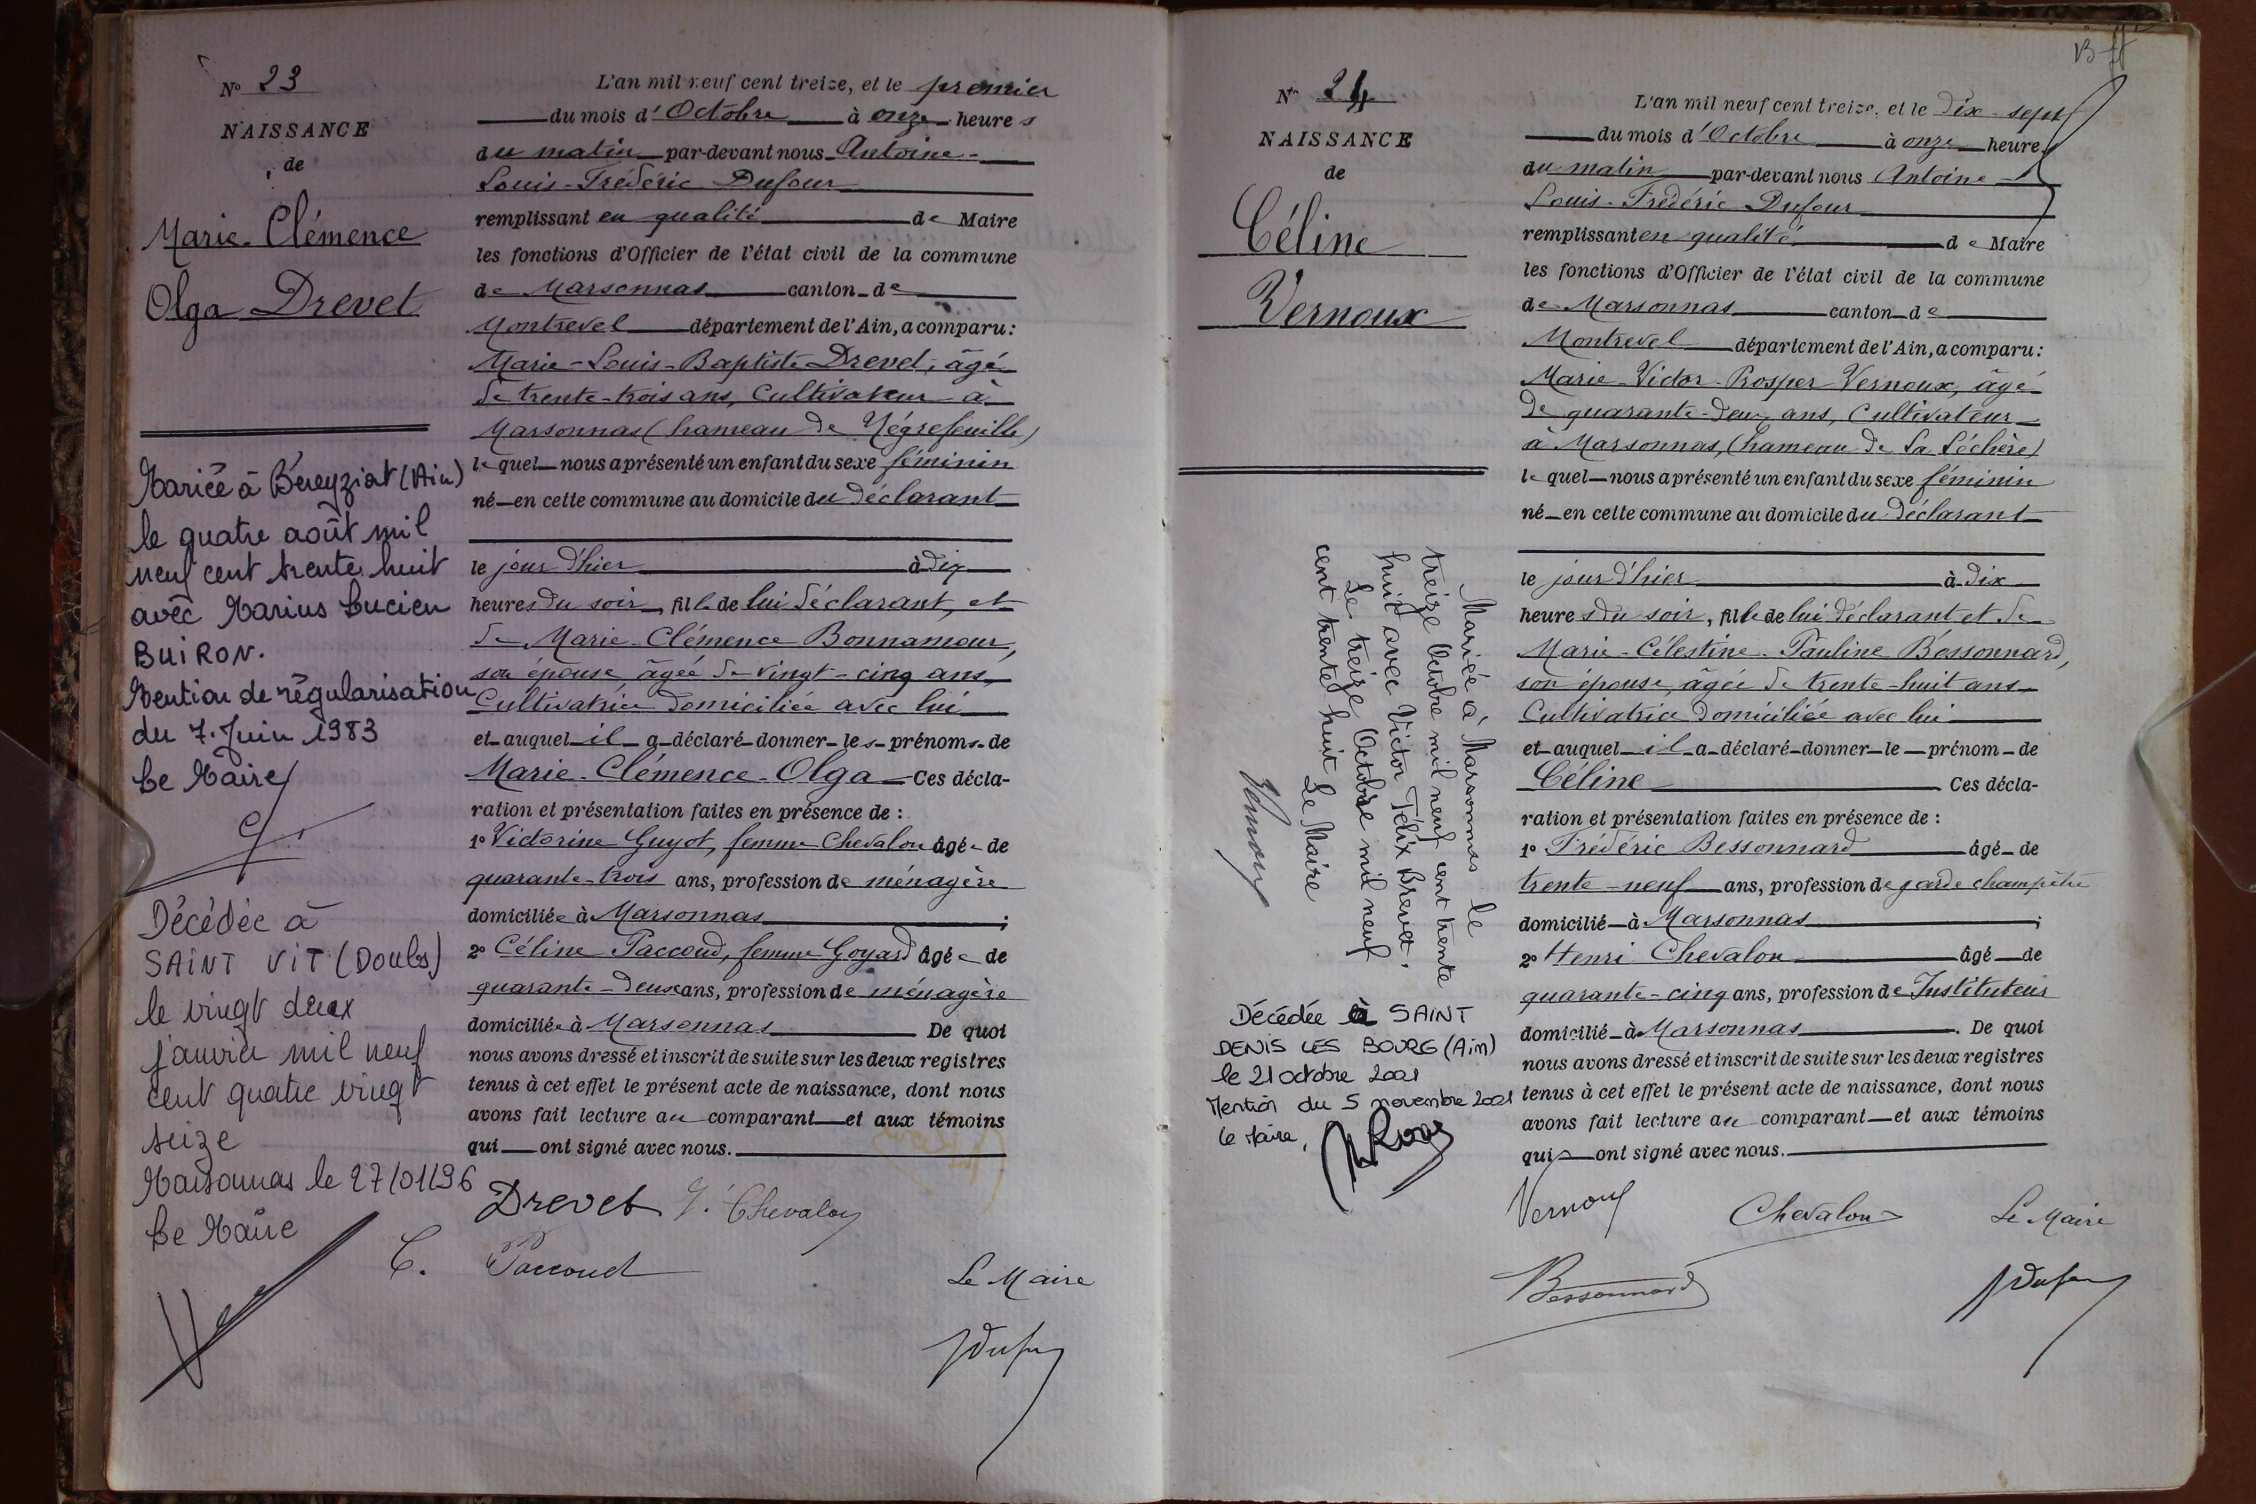 N° 23
NAISSANCE
de
Marie-Clémence
Olga Drevet
Mariée à Béreyziat (Ain)
le quatre août mil
neuf cent trente huit
avec Marius Lucien
BUIRON.
Mention de régularisation
du 7. Juin 1983
Le Maire
Décédée à
SAINT VIT (Doubs)
le vingt deux
janvier mil neuf
cent quatre vingt
seize
Marsonnas le 27/01/96
Le Maire
L'an mil neuf cent treize, et le premier
du mois d'Octobre à onze heures
du matin par-devant nous Antoine-
Louis-Frédéric Dufour
remplissant en qualité de Maire
les fonctions d'Officier de l'état civil de la commune
de Marsonnas canton de
Montrevel département de l'Ain, a comparu:
Marie-Louis-Baptiste Drevet, âgé
de trente-trois ans, Cultivateur à
Marsonnas (hameau de Négrefeuille)
lequel nous a présenté un enfant du sexe féminin
né en cette commune au domicile du déclarant
le jour d'hier à dix
heures du soir, fille de lui déclarant, et
de Marie-Clémence Bonnamour,
son épouse âgée de vingt-cinq ans,
Cultivatrice domiciliée avec lui
et auquel il a déclaré donner les prénoms de
Marie-Clémence-Olga Ces décla-
ration et présentation faites en présence de :
1° Victorine Guyot, femme Chevalon âgée de
quarante-trois ans, profession de ménagère
domiciliée à Marsonnas ;
2° Céline Paccoud, femme Goyard âgée de
quarante-deux ans, profession de ménagère
domiciliée à Marsonnas De quoi
nous avons dressé et inscrit de suite sur les deux registres
tenus à cet effet le présent acte de naissance, dont nous
avons fait lecture au comparant et aux témoins
qui ont signé avec nous.
Drevet V. Chevalon
C. Paccoud
Le Maire
Dufour
N° 24
NAISSANCE
de
Céline
Vernoux
Mariée à Marsonnas le
treize Octobre mil neuf cent trente
huit avec Victor Félix Brevet.
Le treize Octobre mil neuf
cent trente huit Le Maire
Vernoux
Décédée à SAINT
DENIS LES BOURG (Ain)
le 21 octobre 2001
Mention du 5 novembre 2001
Le Maire,
L'an mil neuf cent treize, et le dix-sept
du mois d'Octobre à onze heure
du matin par-devant nous Antoine
Louis-Frédéric Dufour
remplissant en qualité de Maire
les fonctions d'Officier de l'état civil de la commune
de Marsonnas canton de
Montrevel département de l'Ain, a comparu:
Marie-Victor-Prosper Vernoux, âgé
de quarante-deux ans, Cultivateur
à Marsonnas, (hameau de La Léchère)
lequel nous a présenté un enfant du sexe féminin
né en cette commune au domicile du déclarant
le jour d'hier à dix
heures du soir, fille de lui déclarant et de
Marie-Célestine-Pauline Bessonnard,
son épouse, âgée de trente-huit ans
Cultivatrice domiciliée avec lui
et auquel il a déclaré donner le prénom de
Céline Ces décla-
ration et présentation faites en présence de :
1° Frédéric Bessonnard âgé de
trente-neuf ans, profession de garde champêtre
domicilié à Marsonnas ;
2° Henri Chevalon âgé de
quarante-cinq ans, profession de Instituteur
domicilié à Marsonnas. De quoi
nous avons dressé et inscrit de suite sur les deux registres
tenus à cet effet le présent acte de naissance, dont nous
avons fait lecture au comparant et aux témoins
qui ont signé avec nous.
Vernoux Chevalon Le Maire
Bessonnard Dufour